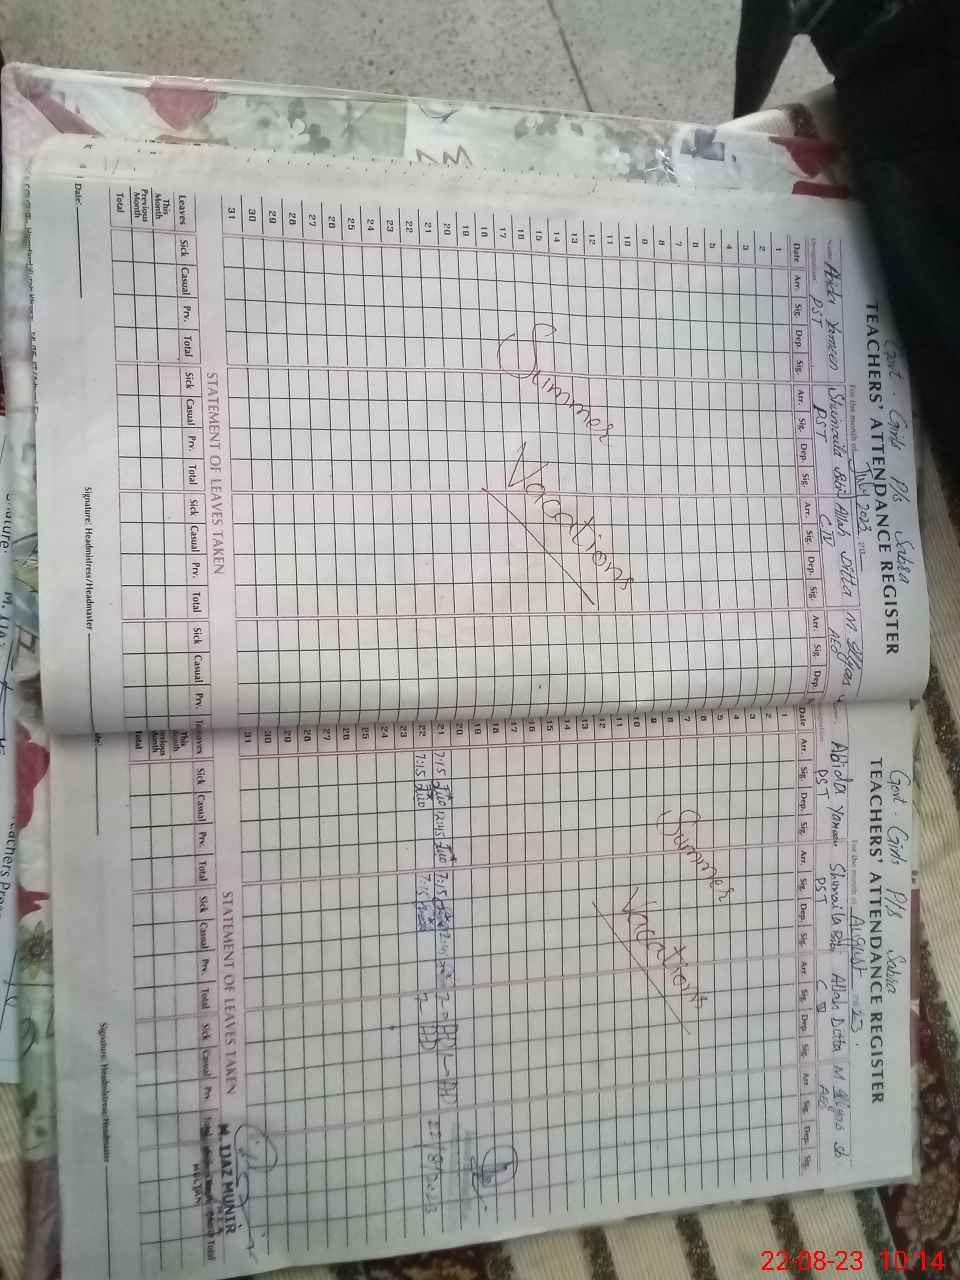 Govt. Girls P/S Sabra
TEACHERS' ATTENDANCE REGISTER
For the month of July 2023
Name Abida Yameen Shumaila Bibi Allah Ditta M Ilyas
Designation PST PST C IV AEO
Date Arr. Sig. Dep. Sig. Arr. Sig. Dep. Sig. Arr. Sig. Dep. Sig. Arr. Sig. Dep.
1
2
3
4
5
6
7
8
9
10
11
12
13
14
15
16
17
18
19
20
21
22
23
24
25
26
27
28
29
30
31
Summer
Vacations
STATEMENT OF LEAVES TAKEN
Leaves Sick Casual Prv. Total Sick Casual Prv. Total Sick Casual Prv. Total Sick Casual Prv.
This Month
Previous Month
Total
Date:
Signature: Headmistress/Headmaster
Govt. Girls P/S Sabra
TEACHERS' ATTENDANCE REGISTER
For the month of August 2023
Abida Yameen Shumaila Bibi Allah Ditta M Ilyas
PST PST C IV AEO
Date Arr. Sig. Dep. Sig. Arr. Sig. Dep. Sig. Arr. Sig. Dep. Sig. Arr. Sig. Dep. Sig.
1
2
3
4
5
6
7
8
9
10
11
12
13
14
15
16
17
18
19
20
21 7:15 12:45 7:15
22 7:15 7:15 7 AD 22/8/2023
23
24
25
26
27
28
29
30
31
Summer
Vacation
STATEMENT OF LEAVES TAKEN
Leaves Sick Casual Prv. Total Sick Casual Prv. Total Sick Casual Prv. Total
This Month
Previous Month
Total
M. IJAZ MUNIR
Signature: Headmistress/Headmaster
22-08-23 10:14